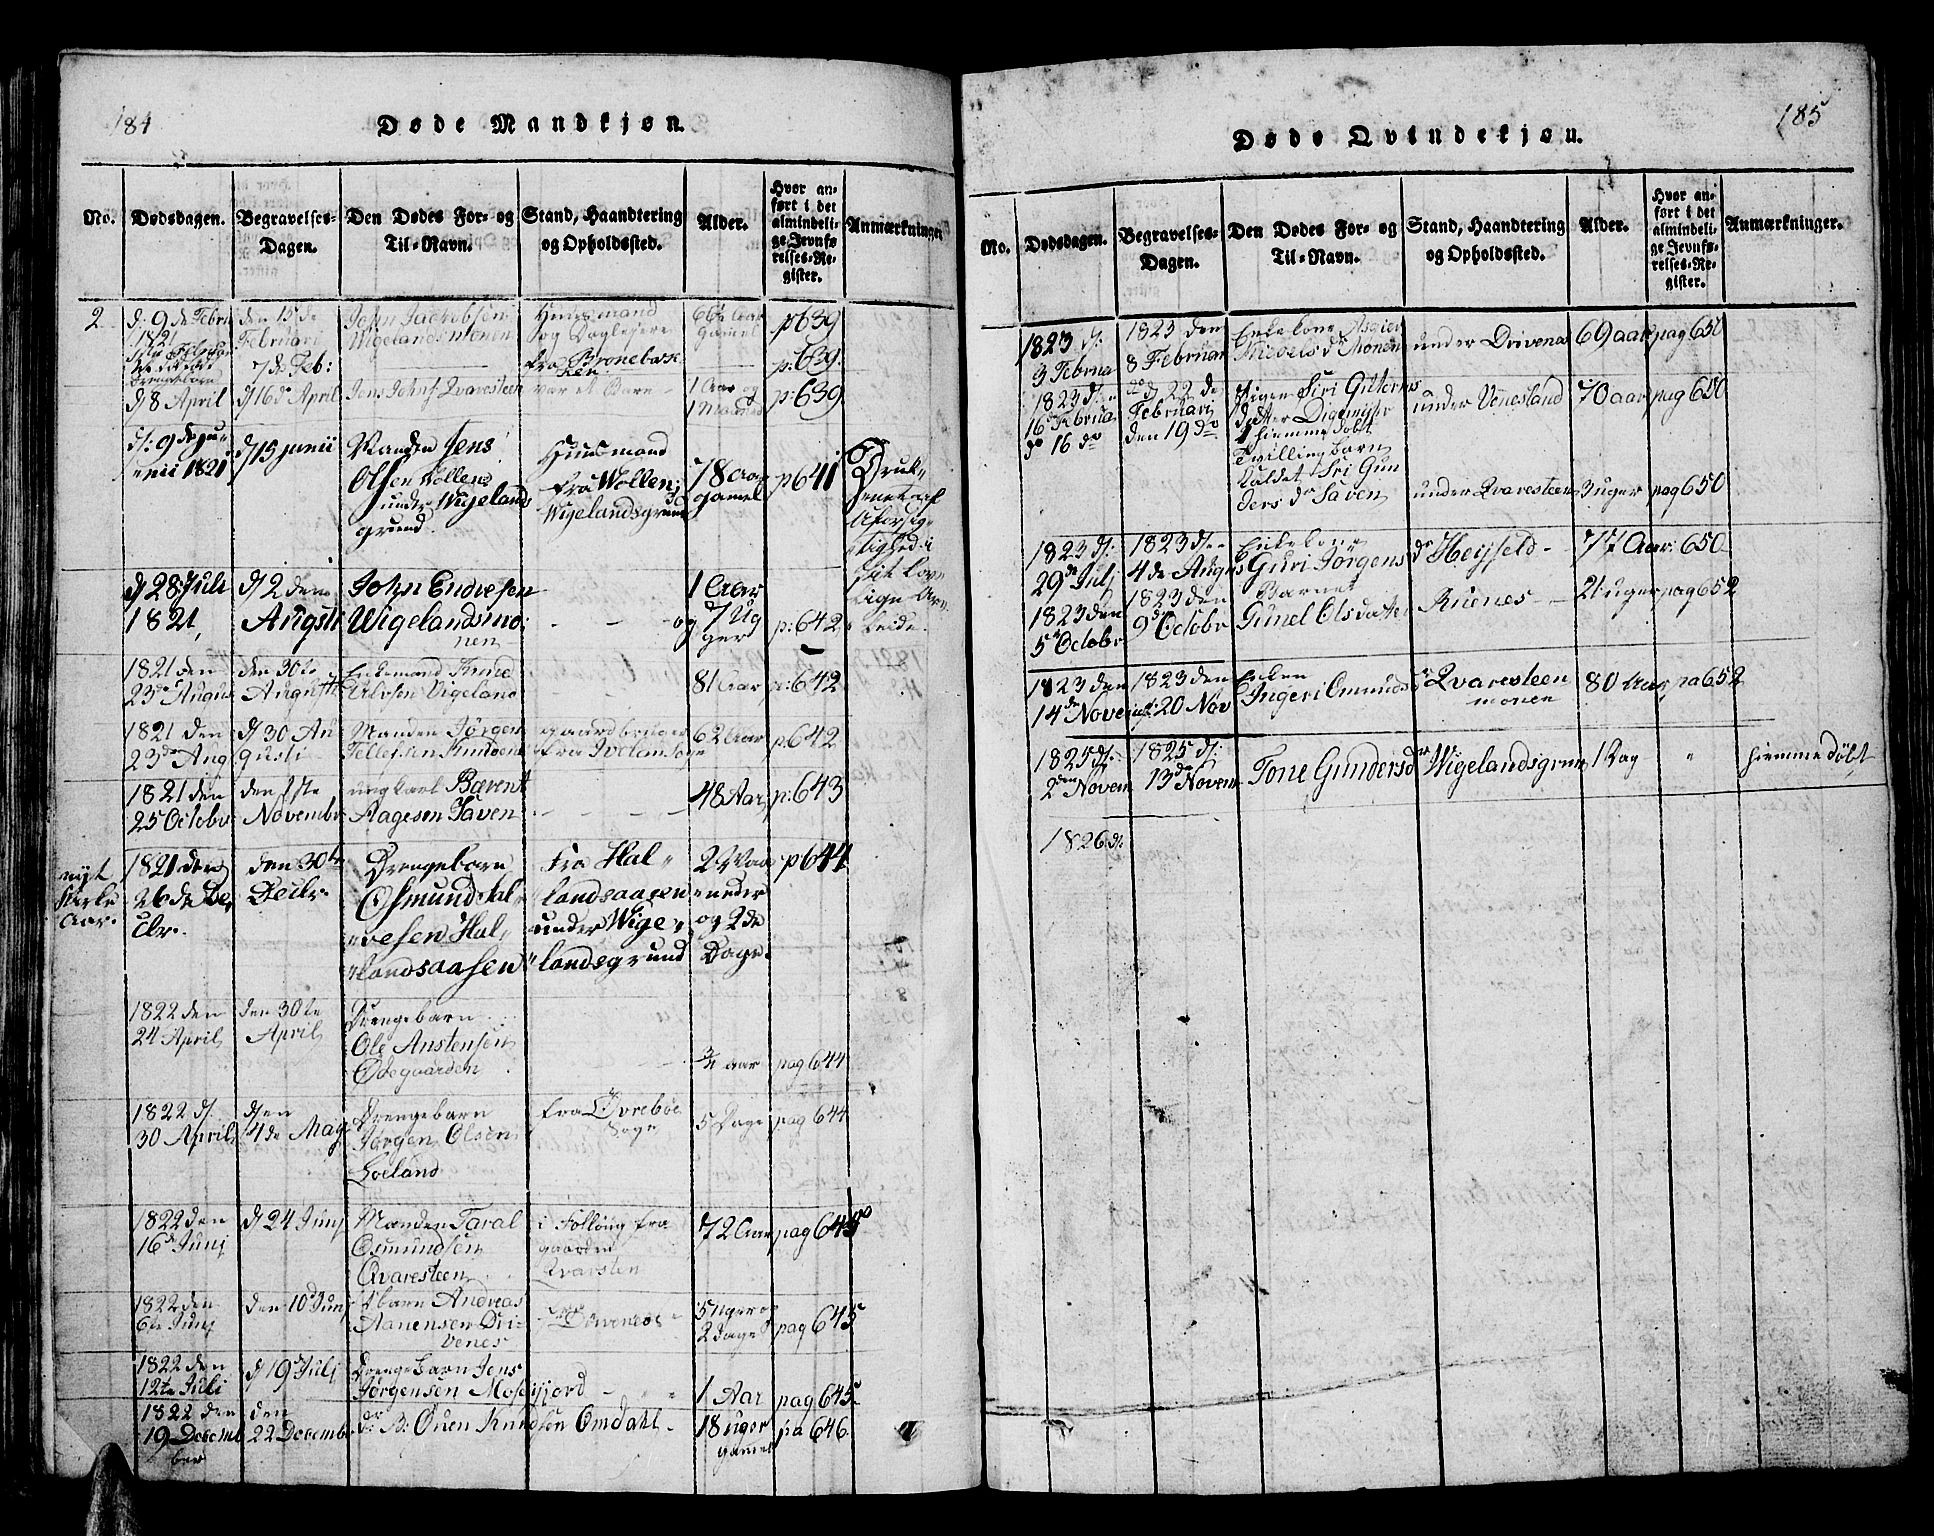 184
Døde Mandkjøn.
No.
Dødsdagen.
Begravelses-
Dagen.
Den Dødes For- og
Til-Navn.
Stand, Haandtering
og Opholdssted.
Alder.
Hvor an-
ført i det
almindeli-
ge Jevnfø
relses-Re-
gister.
Anmærkninger
2
d: 9 de Febru
1821
den 15 de
Februari
John Jackobsen
Wigelandsmonen
Huusmand
og Daglejere
fra Bronebak
ken
66 Aar
gamel
p 639
7 de Feb:
p: 639.
d 8 April
d 16 de April
Jens Johns Kvaresteen
var et Barn
1 Aar og
1 Maaned
p: 639
d: 9 de ju
nii 1821
d 15 junii
Manden Jens
Olsen Wollen
under Wigeland
grund.
Huusmand
fra Wollen
Wigelandsgrund
78 Aar
gamel
p 641
Druk
enet af
Uforsig
tighed i
sit lov
lige Ar
beide.
d 28 Juli
1821,
d 2 den
Augsti
John Endresen
Wigelandsmo
nen
1 Aar
og 7 Ug
ger
p: 642
1821 den
23 de Augus
den 30te
Augusti
Enkemand Knud
Alvsen Vigeland
81 Aar
p: 642
1821 den
23 de Aug
d 30 Au
gusti
Manden Jørgen
Tellefsen Knudsen
gaardbruger
fra Ivelandsogn
62 Aar
p: 642
1821 den
25 Octobr
den 1ste
Novembr
ungkarl Bærent
Aagesen Saven
48 Aar
p: 643
nyt
Kirke
Aar.
1821 den
26 de De
cbr.
den 30te
Decbr.
Drengebarn
Osmund Hal
vesen Hal
landsaasen
fra Hal
landsaasen
under Wige
landsgrund
og 2 de
Dage.
p 644
1822 den
24 April
den 30te
April
Drengebarn
Ole Anstensen
Ødegaarden
3/4 aar
pag 644
1822 d:
30 April
den
4 de May
Drengebarn
Jørgen Olsen
Loeland
fra Øvrebøe
Sogn
5 Dage
pag 644
1822 den
16 de Junj
d 24 Junj
Manden Taral
Osmundsen
Qvaresteen
i Følloug fra
gaarden
Kvarsten
72 Aar
pag 645
1822 den
6te Junj
den 10 Junj
barn Andreas
Aanensen Dri-
venes
Drivenes
5 Uger og
2 dage
pag 645
1822 den
12te Juli
d 19 Juli
Drengebarn Jens
Jørgensen Mosefjord
1 Aar
pag 645
1822 den
19 Decem
ber
den
22 Decembr
do B: Ouen Knudsen Omdahl
18 uger
gamel
pa 646
185
Døde Qvindekjøn.
No.
Dødsdagen.
Begravelses-
Dagen.
Den Dødes For- og
Til-Navn.
Stand, Haandtering
og Opholdssted.
Alder.
Hvor an-
ført i det
almindeli-
ge Jevnfø-
relses-Re-
gister.
Anmærkninger.
1823 d:
3 Februa
1823 den
8 Februar
Enkekone Asgier
Mikels dr Monen
under Drivenes
69 aar
pag 650
1823 d:
16 Februa
do 16 do
do d 22 de
Februari
den 19 do
Pigen Siri Gutorms
datter
hiemme døbt
Twilling barn
kaldet Siri Gun
ders dr Saven
under Venesland
70 aar
pag 650
under Kvaresteen
3 uger
pag 650
1823 d:
29 de Julj
1823 den
4 de Augus
Enkekone
Guri Jørgens dr
Heyseld
77 Aar
650
1823 den
5 Octobr
1823 den
9 de Octobr
Barnet
Gunel Olsdatter
Ruenes
21 uger
pag 652
1823 den
14 de Novem
1823 den
20 Nov
Enken
Ingeri Omunds dr
Kvaresteen
monen
80 Aar
pa 652
1825 d:
2 den Novem
1825 d:
13 de Novem
Tone Gunders dr
Wigelandsgrun
1 Dag
"
hiemme døbt
1826 d: